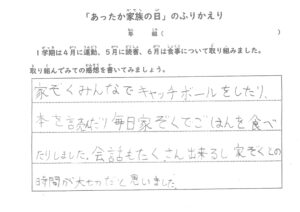 「あったか家族の日」のふりかえり
年 組( )
1学期は4月に運動、5月に読書、6月は食事について取り組みました。
取り組んでみての感想を書いてみましょう。
家ぞくみんなでキャッチボールをしたり、
本を読んだり毎日家ぞくでごはんを食べ
たりしました。会話もたくさん出来るし家ぞくとの
時間が大せつだと思いました。